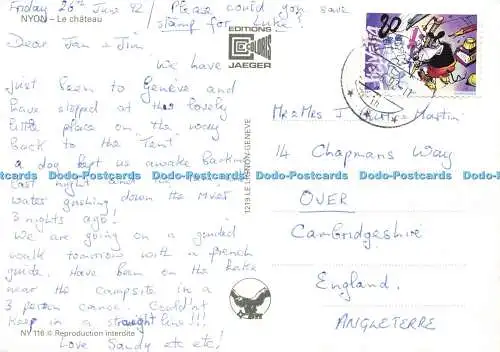 Friday 26th June 92 / Please could you save
stamp for Luke!
NYON – Le château
Dear Jan & Jim
We have
just been to Genève and
have stopped at this lovely
little place on the way
back to the Tent.
a dog kept us awake barking
last night and
water gushing down the
3 nights ago!
We are going on a guided
walk tomorrow with a french
guide. Have been on the Lake
near the campsite in a
3 person canoe. Couldn't
keep in a straight line!!!
Love Sandy etc etc!
NY 116 © Reproduction interdite
EDITIONS
JAEGER
1219 LE LIGNON-GENEVE
80
HELVETIA
Mr & Mrs J Martin
14 Chapmans Way
OVER
Cambridgeshire
England.
ANGLETERRE
Dodo-Postcards Dodo-Postcards Dodo-Postcards Dodo-Postcards Dodo-Postcards